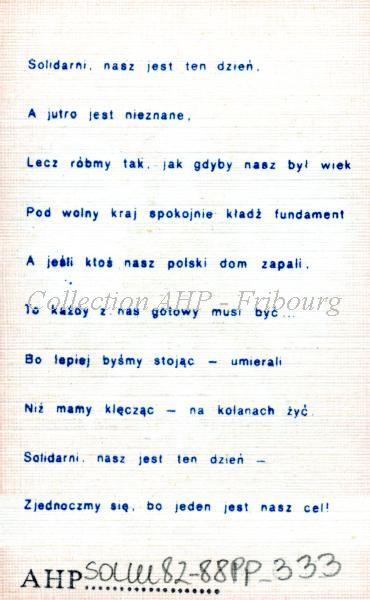 Solidarni, nasz jest ten dzień,
A jutro jest nieznane,
Lecz róbmy tak, jak gdyby nasz był wiek
Pod wolny kraj spokojnie kładź fundament
A jeśli ktoś nasz polski dom zapali,
Collection AHP - Fribourg
To każdy z nas gotowy musi być...
Bo lepiej byśmy stojąc – umierali
Niż mamy klęcząc – na kolanach żyć.
Solidarni, nasz jest ten dzień –
Zjednoczmy się, bo jeden jest nasz cel!
AHP SOLID82-88PP_333